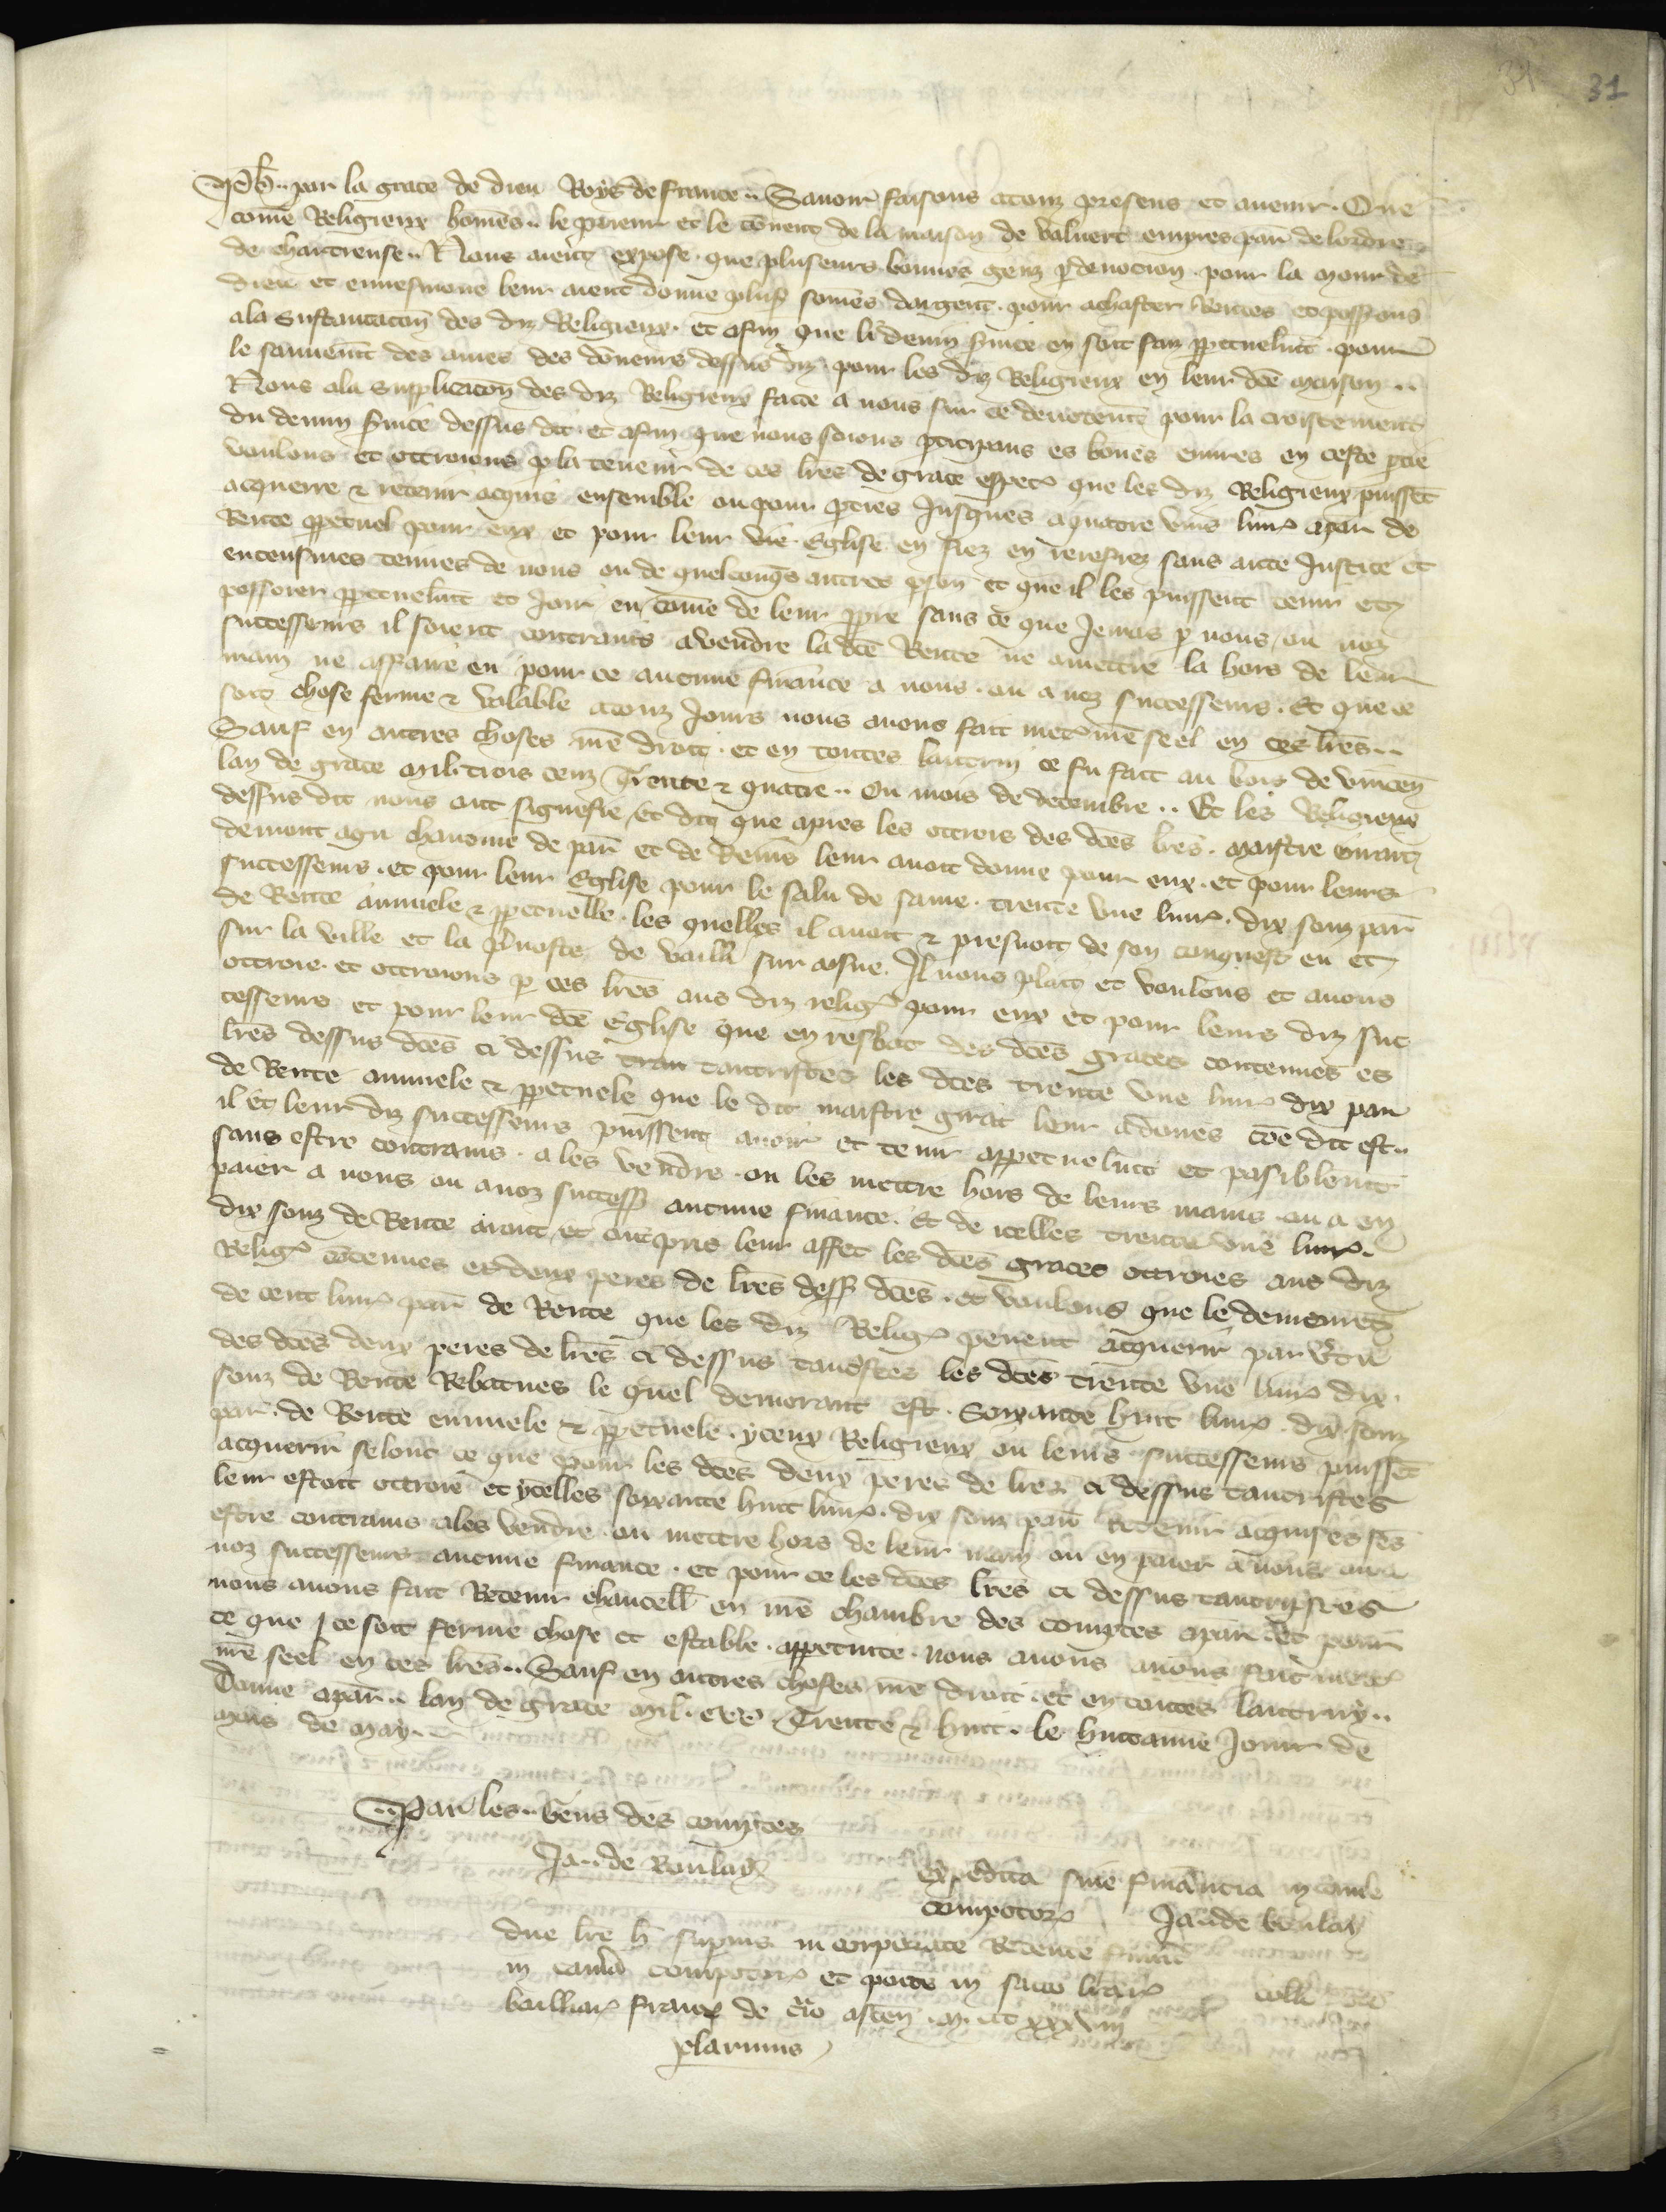 31
Ph̃. par la grace de dieu Roys de france. Savoir faisons a touz presens et avenir. Que
come Religieux homes. le prieur et le covent de la maison de valvert empres par̃ de lordre
de chartreuse. Nous aient expose. que pluseurs bonnes genz p devocion. pour la mour de
dieu et en leur aient donne plus̃ somes dargent. pour achater Rentes et possessions
a la Sustantacon des diz Religieux. et afin que li devin s̃vice en soit faiz ppetuelmt̃. pour
le sauvemt̃ des ames des doneurs dessus diz pour les diz Religieux en leur dc̃e maison.
Nous a la Supplicacon des diz Religieux faite a nous sur ce devotemt̃ pour la croissement
du devin s̃vice dessus dit. et afin que nous soions pticipans es bones euvres en ceste ptie
voulons et ottroions p la teneur de ces lr̃es de grace espec̃ que les diz Religieux puissẽt
acquerre & retenir acquis ensemble ou pour pties Jusques a quatre vins livr̃ a par̃ de
Rente ppetuel pour eux et pour leur dic̃e Eglise en fiez en rerefiez sans aute Justice et
en censives tenues de nous ou de quelconq̃s autres pson̄ et que il les puissent tenir et
possoier ppetuelmt̃ et Joir en come de leur ppre sans ce que Jemas p nous ou noz
successeurs il soient contrains a vendre la dc̃e Rente ne a mettre la hors de leur
main ne a ffaire en pour ce aucune finance a nous. ou a noz successeurs. Et que ce
soit chose ferme & valable a touz Jours nous avons fait metr̃ nr̃e seel en ces lr̃es.
Sauf en autres choses nr̃e droit. et en toutes lautrui ce fu fait au bois de vincen̄
lan de grace mil. trois cenz Trente & quatre. Ou mois de decembre. Et les Religieux
dessus dit nous ont signefie Et dit que apres les ottrois des dc̃es lr̃es. maistre Girart
demont agu chanoine de par̃ et de Reins leur avoit donne pour eux. et pour leurs
successeurs. et pour leur Eglise pour le salu de same. trente une livr̃. dix souz par̃
de Rente annuele & ppetuelle. les quelles il avoit & prenoit de son conquest en et
sur la ville et la p̃voste de vailli sur aisne. Il nous plait et voulons et avons
ottroie. et ottroions p ces lr̃es aus diz relig̃ pour eux et pour leurs diz suc
cesseurs et pour leur dc̃e Eglise que en resbat des dc̃es graces contenues es
lr̃es dessus dc̃es ci dessus tran tantcriptes les dc̃es trente une livr̃ dix par̃
de Rente annuele & ppetuele que le dit maistre girart leur a donees cõe dit est.
il et leur diz successeurs puissent avoir et tenir appetuelmt̃ et pasiblemt̃
sans estre contrains. a les vendre. ou les mettre hors de leurs mains. ou a en
paier a nous ou a noz success̃ aucune finance. Et de icelles trente une livr̃.
dix souz de Rente aront et ont pris leur affet les dc̃es graces ottroies aus diz
Relig̃ cõtenues es deux peres de lr̃es dess̃ dc̃es. et voulons que le demorant
de cent livr̃ par̃ de Rente que les diz Relig̃ pevent acquerir par v̾tu
des dc̃es deux peres de lr̃es ci dessus tancriptes les dc̃es trente une livr̃ dix.
souz de Rente Rebatues le quel demorant est. Soixante huit livr̃. dix souz
par̃. de Rente ennuele & ppetuele. yceux Religieux ou leurs successeurs puissẽt
acquerir selonc ce que pour les dc̃es deux peres de lr̃es ci dessus tantcriptes
leur estoit ottroie et ycelles soixante huit livr̃. dix souz par̃ Retenir acquises sẽs
estre contrains a les vendre. ou mettre hors de leur main ou en paier a nous ou a
noz successeurs aucune finance. et pour ce les dc̃es lr̃es ci dessus tantcriptes
nous avons fait Retenir chancell̃ en nr̃e chambre des comptes a par̃. Et pour
ce que ce soit ferme chose et estable. appetuite. nous avons avons fait metr̃
nr̃e seel en ces lr̃es.. Sauf en autres choses nr̃e droit. et en toutes lautruy..
Donne a par̃.. lan de grace mil. CCC. Trente & huit. le huitanne Jour de
mois de may.
Par les.. Gens des comptes
Ja.. de Boulay
Expedita sine financia in cam̃a
compotor̃ Ja. de boulay
due lr̃e h̃ supius in corporate Retente fuerũt
in cam̃a compotor̃ et poite in sacco lr̃ar̃
bailliar̃ francie de t̃io ascen̄. m. ccc xxxviii
colł